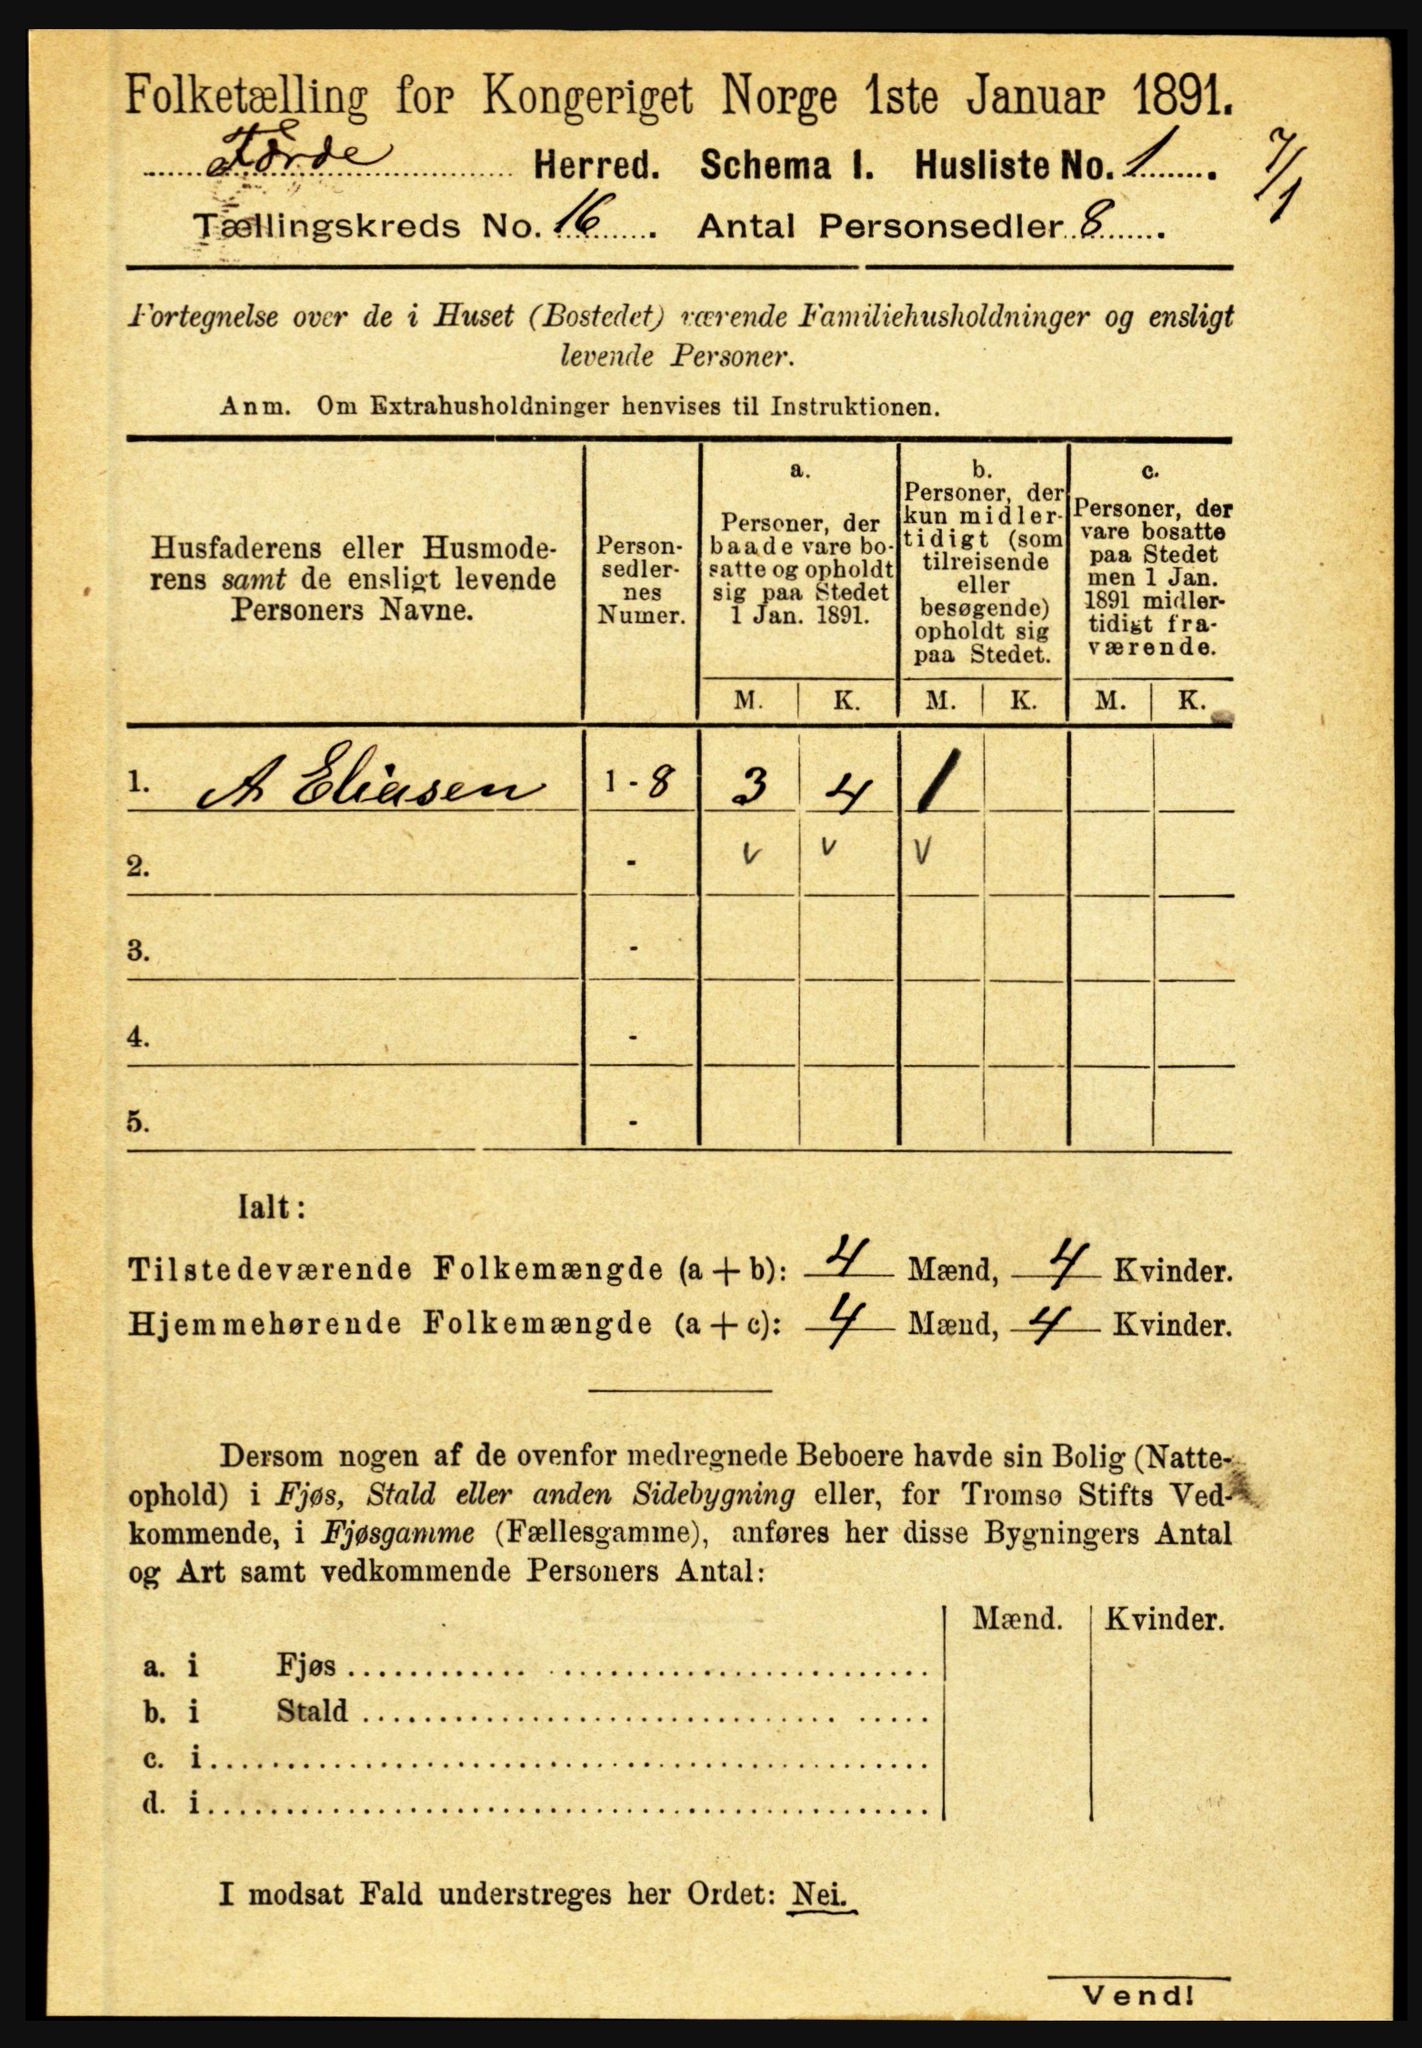 Folketælling for Kongeriget Norge 1ste Januar 1891.
Førde Herred. Schema I. Husliste No. 1.
7/1
Tællingskreds No. 16. Antal Personsedler 8.
Fortegnelse over de i Huset (Bostedet) værende Familiehusholdninger og ensligt
levende Personer.
Anm. Om Extrahusholdninger henvises til Instruktionen.
Husfaderens eller Husmode-
rens samt de ensligt levende
Personers Navne.
Person-
sedler-
nes
Numer.
a.
Personer, der
baade vare bo-
satte og opholdt
sig paa Stedet
1 Jan. 1891.
b.
Personer, der
kun midler-
tidigt (som
tilreisende
eller
besøgende)
opholdt sig
paa Stedet.
c.
Personer, der
vare bosatte
paa Stedet
men 1 Jan.
1891 midler-
tidigt fra-
værende.
M. K. M. K. M. K.
1. A Eliasen 1 - 8 3 4 1
2. - v v v
3. -
4. -
5. -
Ialt:
Tilstedeværende Folkemængde (a + b): 4 Mænd, 4 Kvinder.
Hjemmehørende Folkemængde (a + c): 4 Mænd, 4 Kvinder.
Dersom nogen af de ovenfor medregnede Beboere havde sin Bolig (Natte-
ophold) i Fjøs, Stald eller anden Sidebygning eller, for Tromsø Stifts Ved-
kommende, i Fjøsgamme (Fællesgamme), anføres her disse Bygningers Antal
og Art samt vedkommende Personers Antal:
Mænd. Kvinder.
a. i Fjøs
b. i Stald
c. i
d. i
I modsat Fald understreges her Ordet: Nei.
Vend!